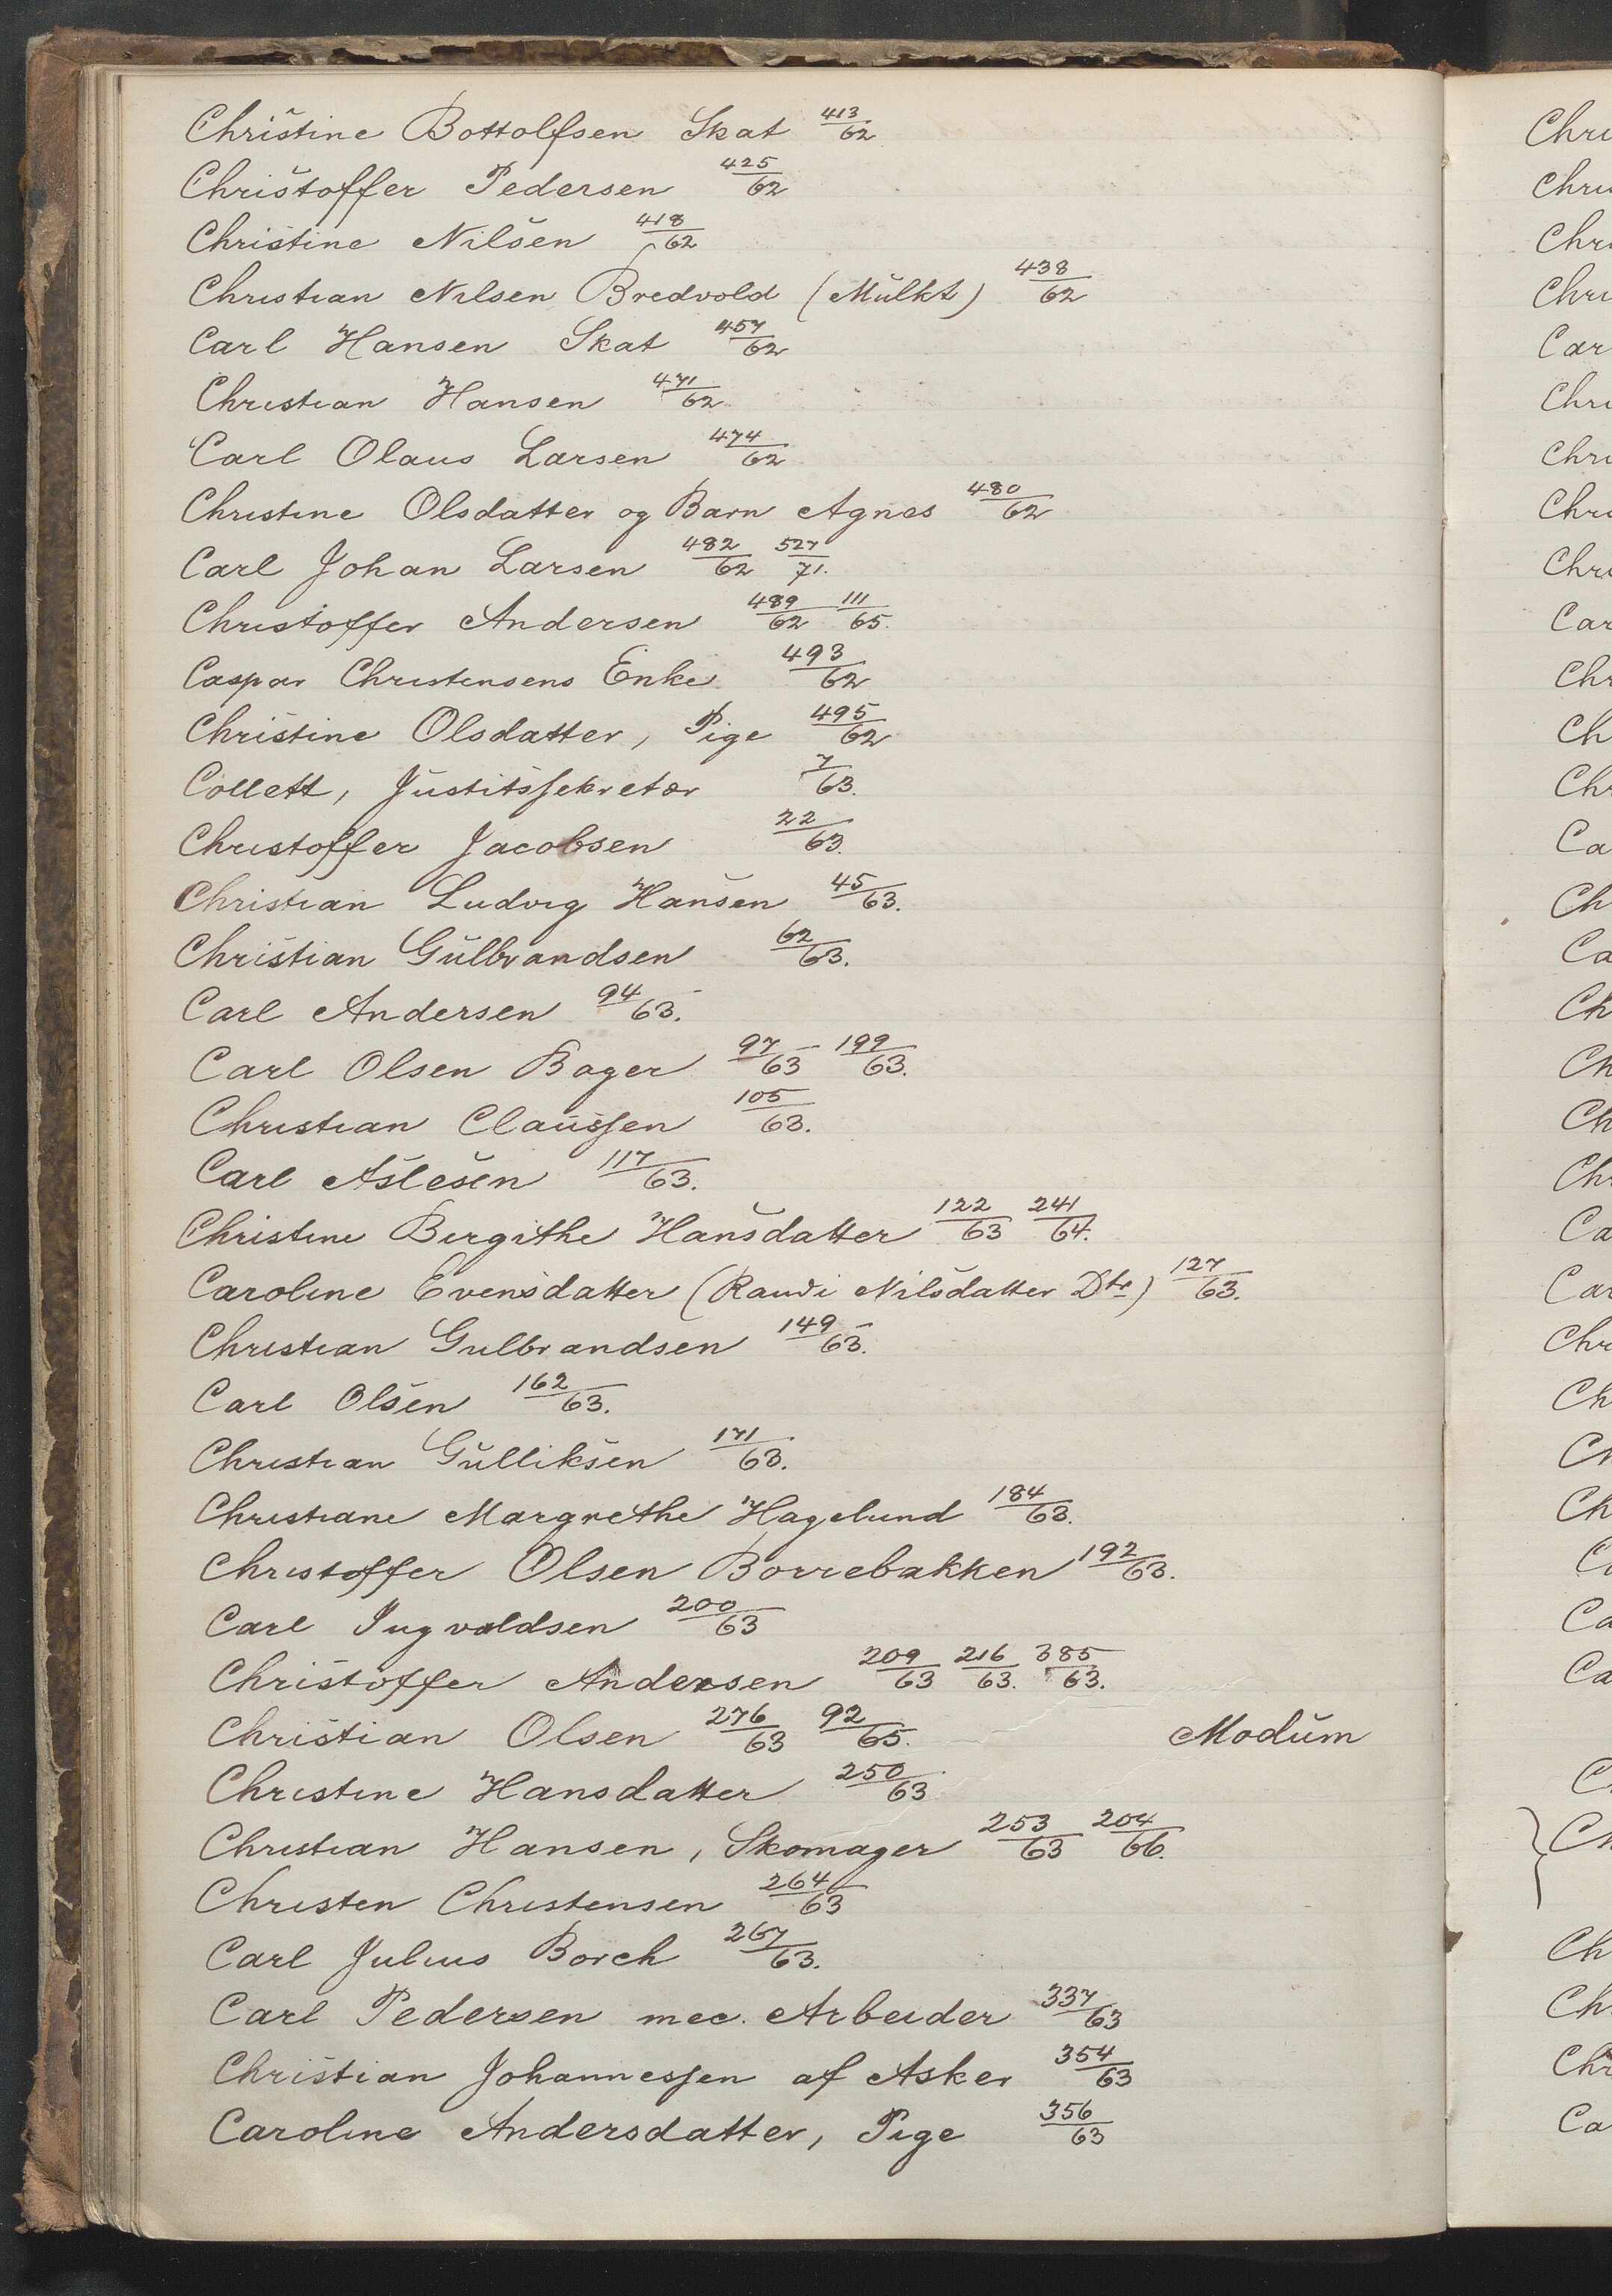 Christine Bottolfsen Skat 413/62
Christoffer Pedersen 425/62
Christine Nilsen 418/62
Christian Nilsen Bredvold (Mulkt) 438/62
Carl Hansen Skat 457/62
Christian Hansen 471/62
Carl Olaus Larsen 474/62
Christine Olsdatter og Barn Agnes 480/62
Carl Johan Larsen 482/62 527/71.
Christoffer Andersen 489/62 111/65.
Caspar Christensens Enke 493/62
Christine Olsdatter, Pige 495/62
Collett, Justitssekretær 7/63.
Christoffer Jacobsen 22/63.
Christian Ludvig Hansen 45/63.
Christian Gulbrandsen 62/63.
Carl Andersen 94/63.
Carl Olsen Bager 97/63 199/63.
Christian Claussen 105/63.
Carl Aslesen 117/63.
Christine Birgithe Hansdatter 122/63 241/64.
Caroline Evensdatter (Randi Nilsdatter Dtr) 127/63.
Christian Gulbrandsen 149/63.
Carl Olsen 162/63.
Christian Gulliksen 171/63.
Christiane Margrethe Hagelund 184/63.
Christoffer Olsen Borrebakken 192/63.
Carl Ingvoldsen 200/63
Christoffer Andersen 209/63 216/63. 385/63.
Christian Olsen 276/63 92/65. Modum
Christine Hansdatter 250/63
Christian Hansen, Skomager 253/63 204/66.
Christen Christensen 264/63
Carl Julius Borch 267/63.
Carl Pedersen mec. Arbeider 337/63
Christian Johannessen af Asker 354/63
Caroline Andersdatter, Pige 356/63